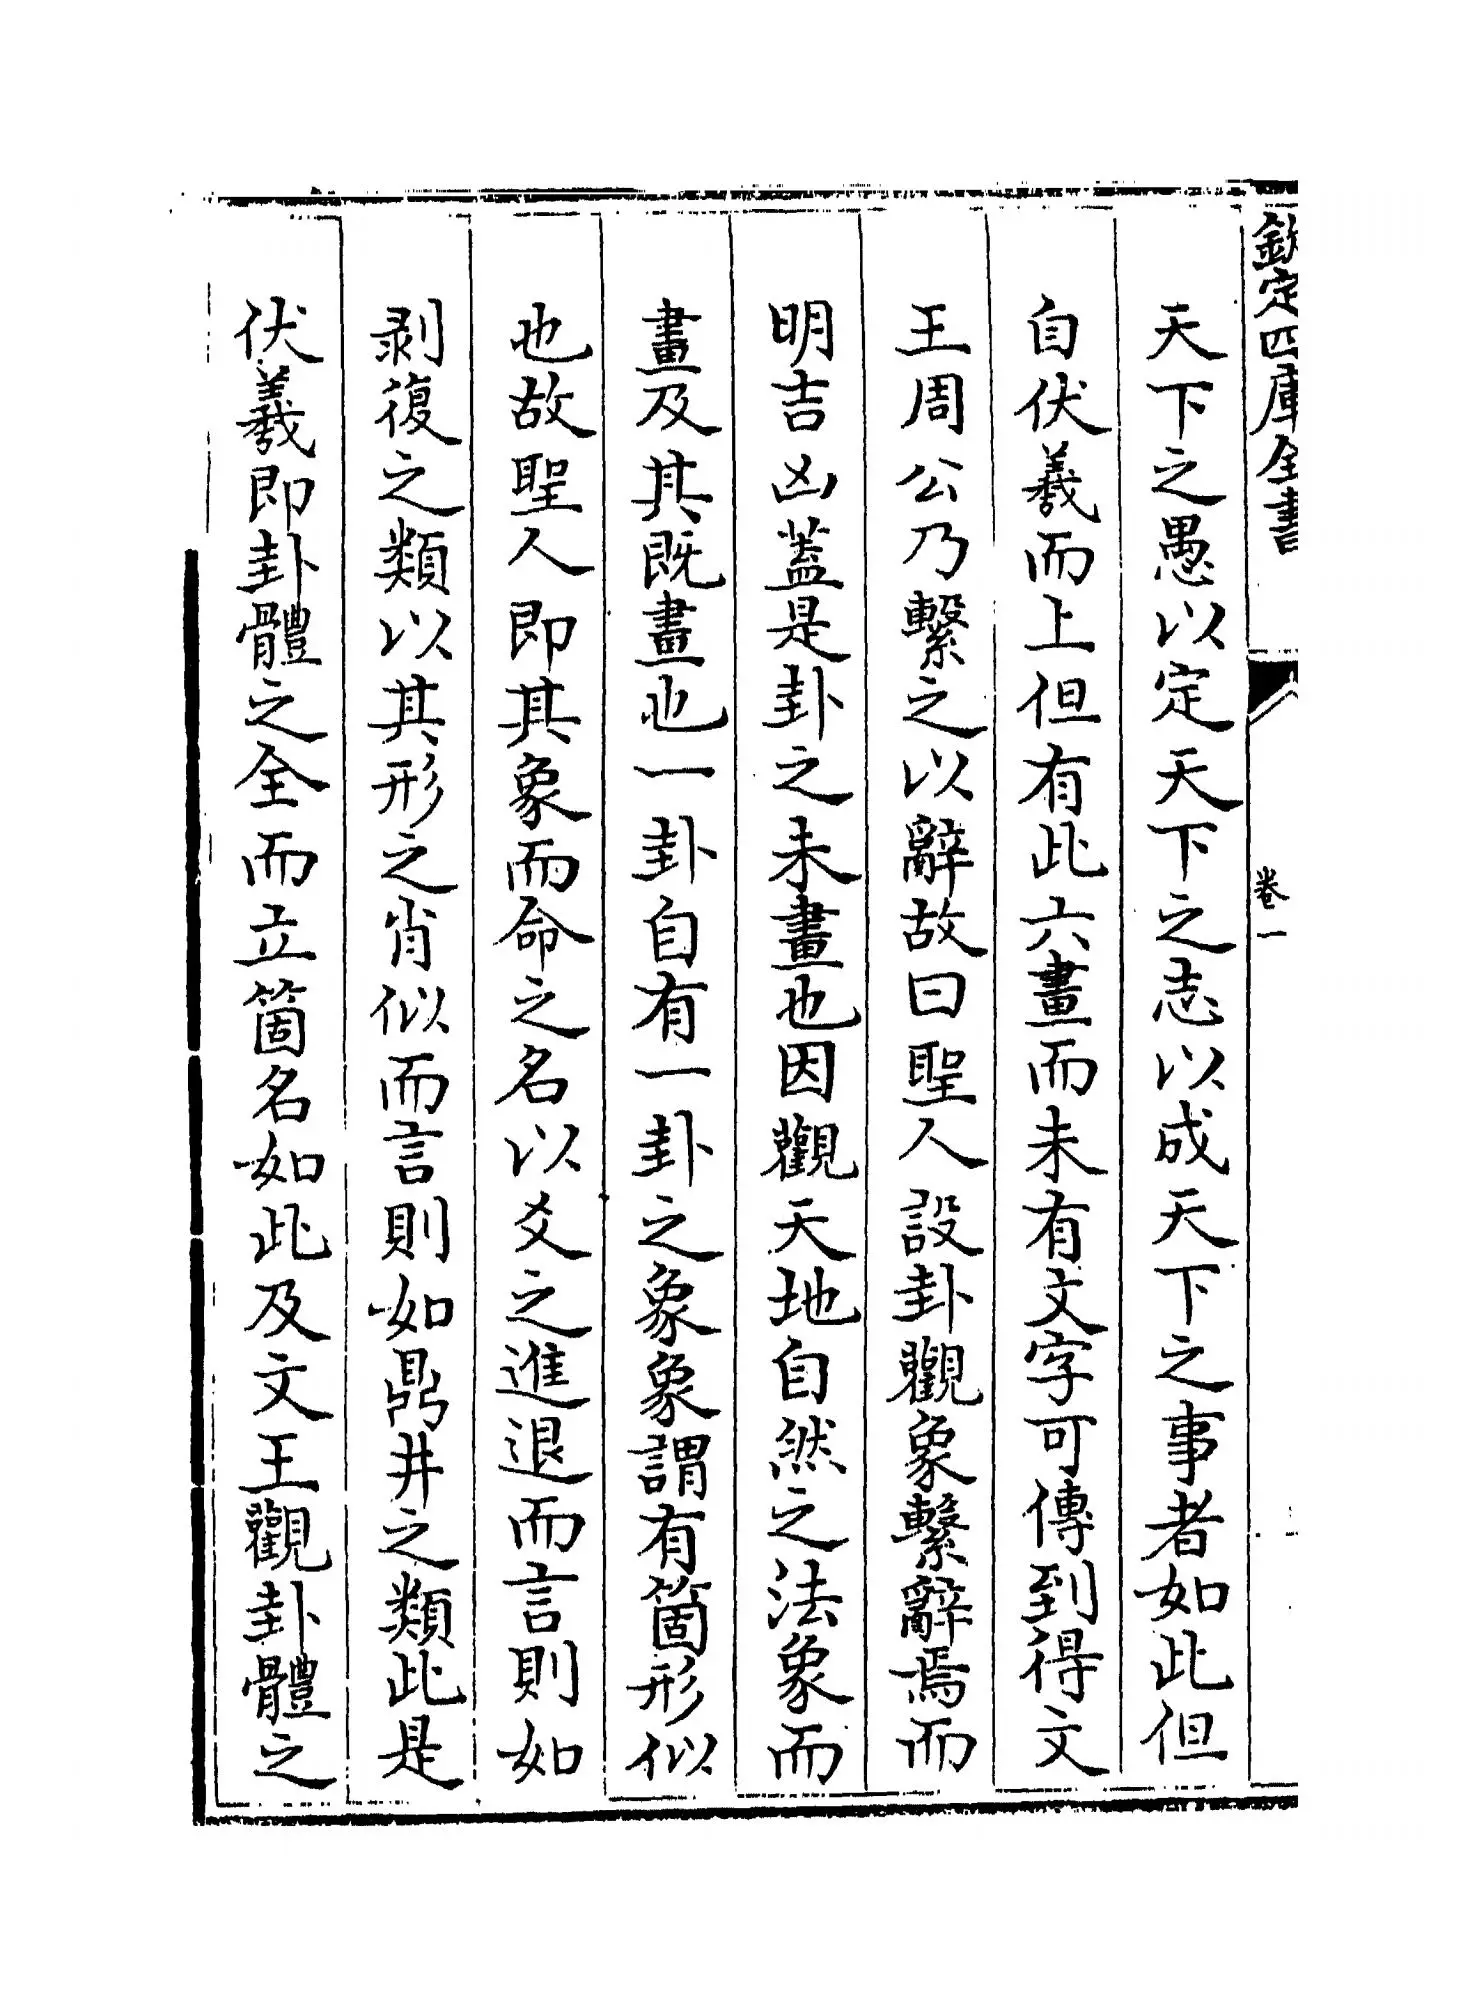 欽定四庫全書
卷一
天下之愚以定天下之志以成天下之事者如此但
自伏羲而上但有此六畫而未有文字可傳到得文
王周公乃繫之以辭故曰聖人設卦觀象繫辭焉而
明吉凶蓋是卦之未畫也因觀天地自然之法象而
畫及其既畫也一卦自有一卦之象象謂有箇形似
也故聖人即其象而命之名以爻之進退而言則如
剥復之類以其形之肖似而言則如鼎井之類此是
伏羲即卦體之全而立箇名如此及文王觀卦體之